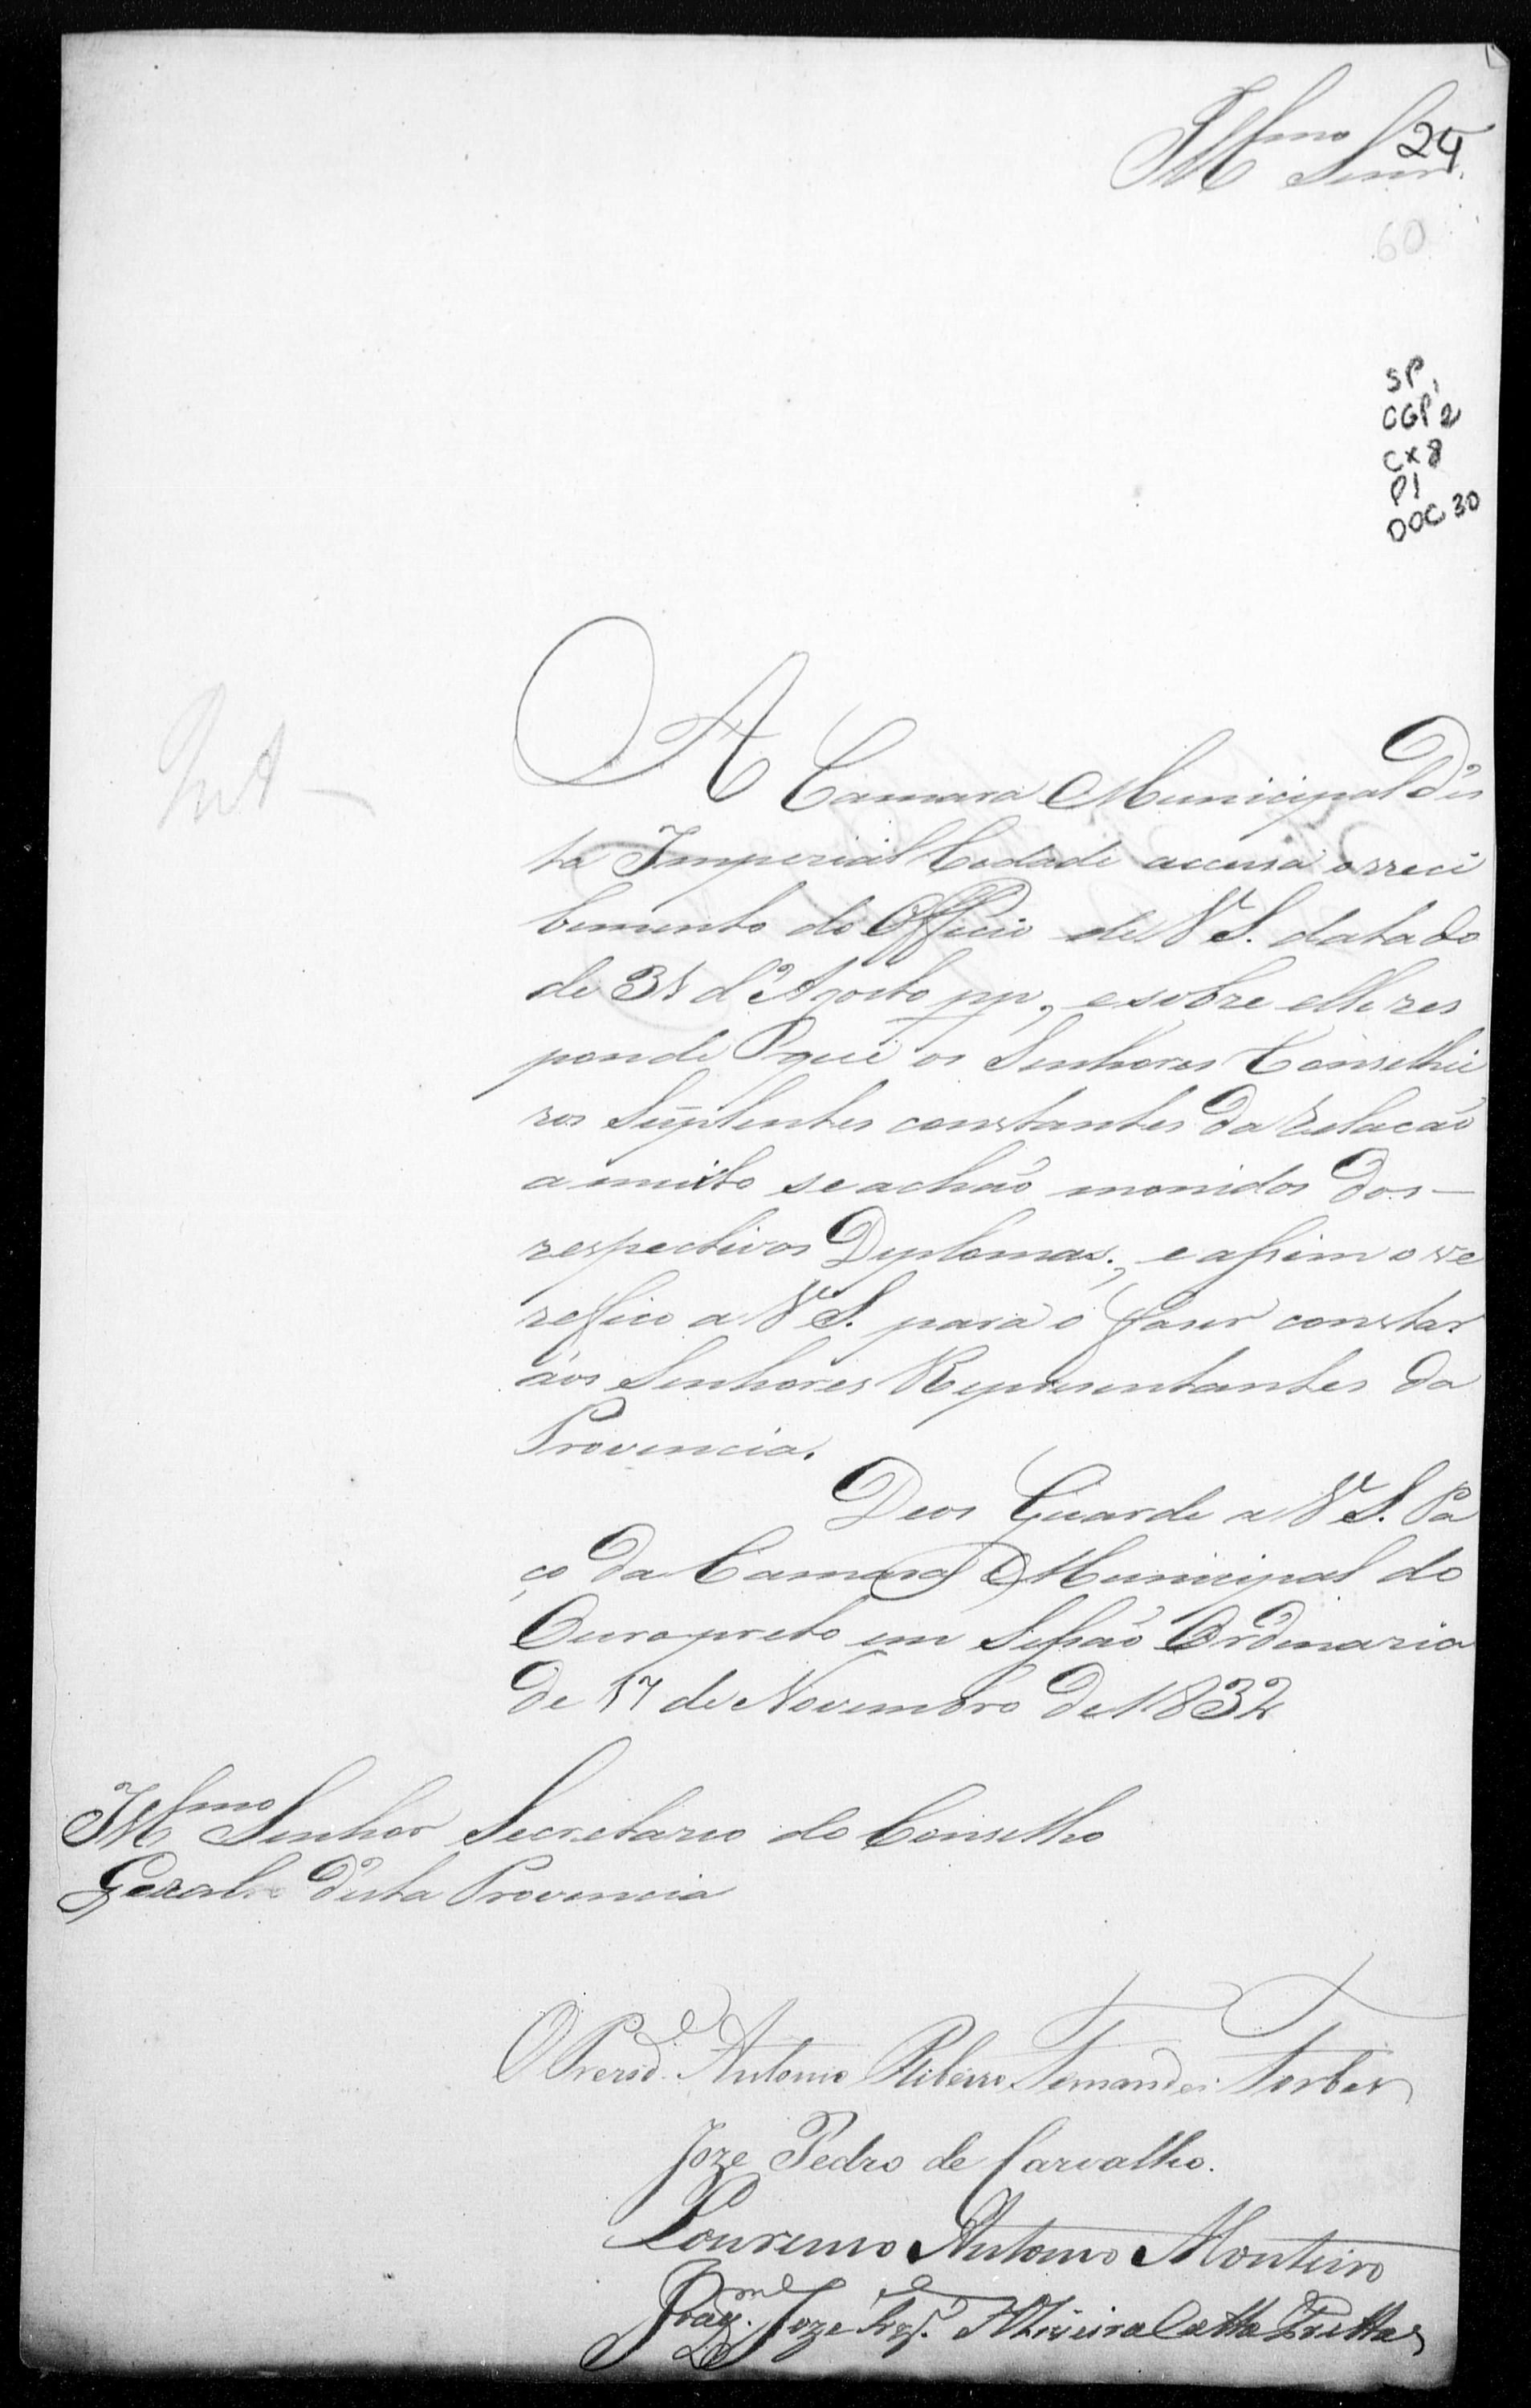 Illmo Senr.
24
60
SP,
CGP 2
CX 8
P1
DOC 30
A Camara Municipal d'es
ta Imperial Cedade accusa o rreci
bimento do Officio de V S. datado
de 31 d'Agosto pp, e sobre elle res
ponde que os Senhores Conselhei
ros Suplentes constantes da relacaõ
a muito se achaõ monidos dos
respectivos Diplomas., e assim o ve
refico a V S. para o faser constar
aos Senhores Representantes da
Provencia.
Deos Guarde a V S. Pa
ço da Camara Municipal do
Ouro preto em Sessaõ Ordinaria
de 17 de Novembro de 1832
Illmo Senhor Secretario do Conselho
Geral d'esta Provencia
O Prezid.e Antonio Ribeiro Fernandes Forbes
Joze Pedro de Carvalho.
Lourenço Antonio Monteiro
Joze Oliveira Catta Pretta